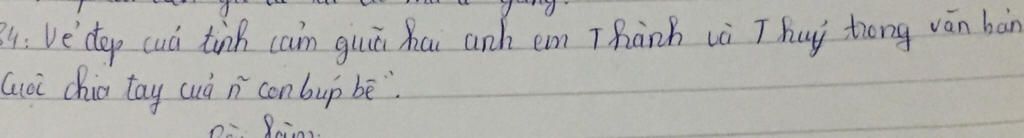 34: Vẻ đẹp cuả tình cảm giưã hai anh em Thành và Thuỷ trong văn bản
Cuộc chia tay cuả n~ con búp bê".
Bài làm